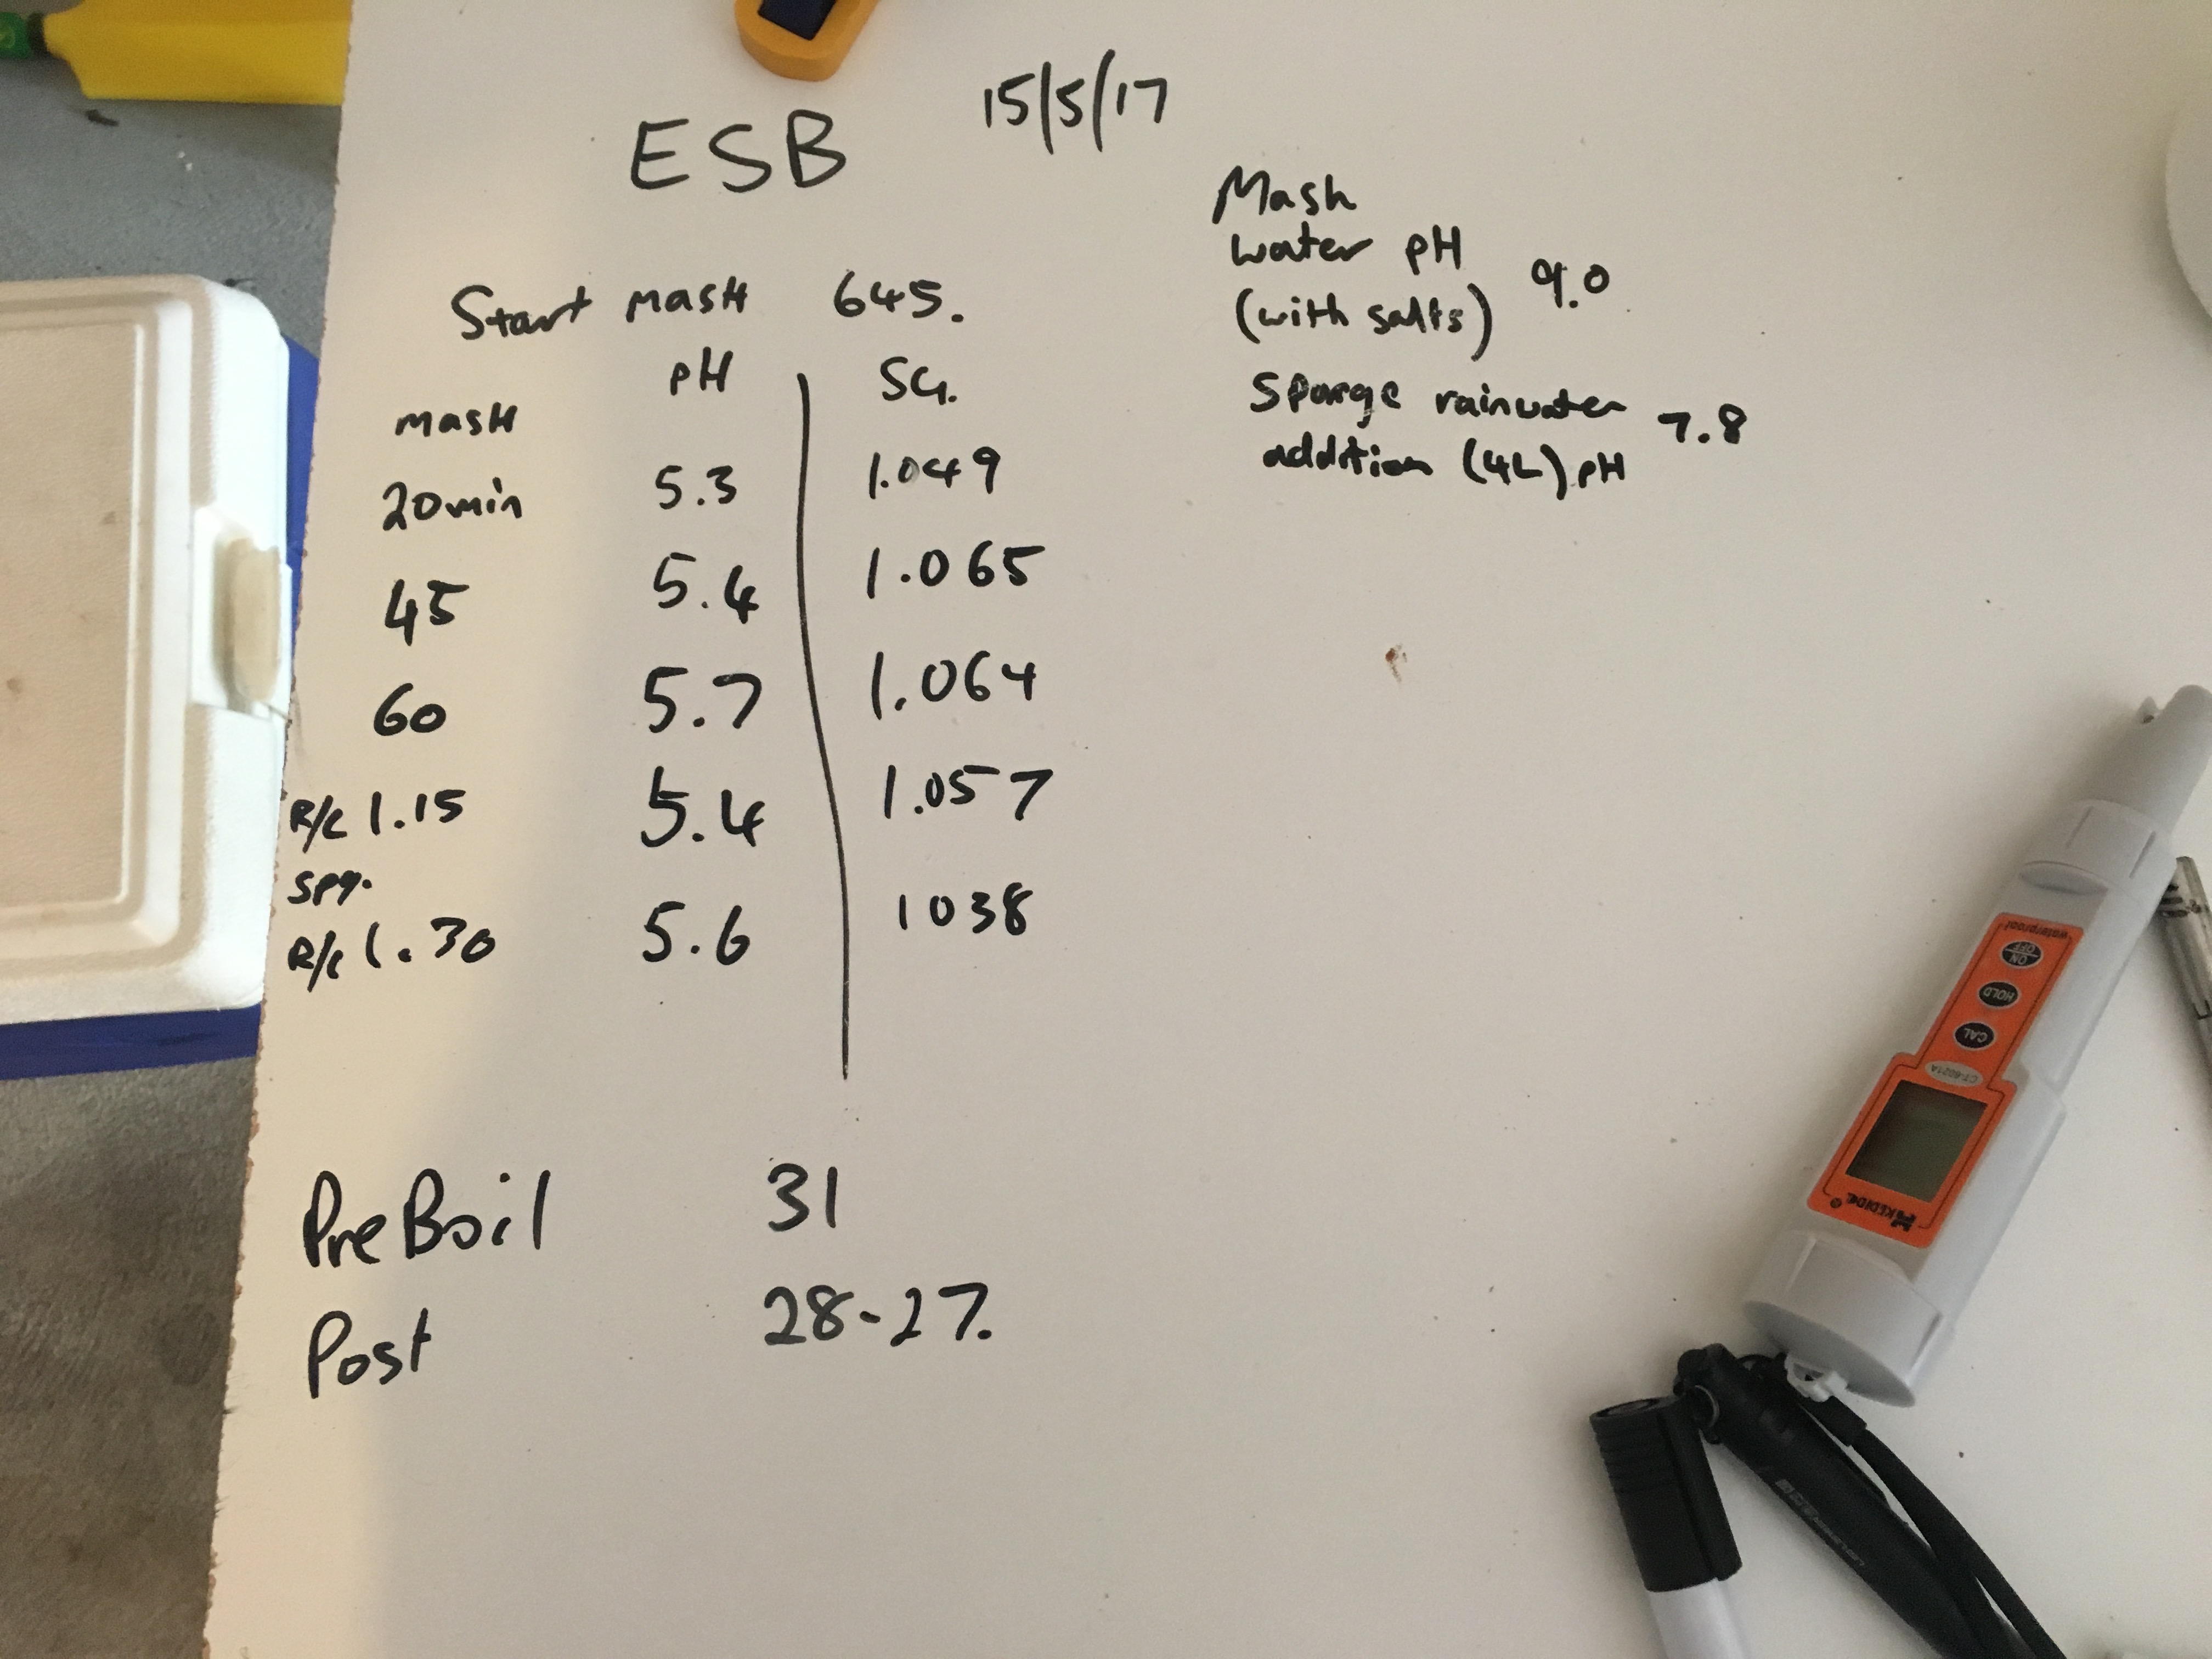 ESB 15/5/17
Start mash 645.
pH SG.
mash
20min 5.3 1.049
45 5.4 1.065
60 5.7 1.064
R/C 1.15 5.4 1.057
spg.
R/C 1.30 5.6 1038
PreBoil 31
Post 28-27.
Mash
water pH
(with salts) 9.0
Sparge rainwater
addition (4L) pH 7.8
waterproof
ON
OFF
HOLD
CAL
CT-6021A
KEDIDA